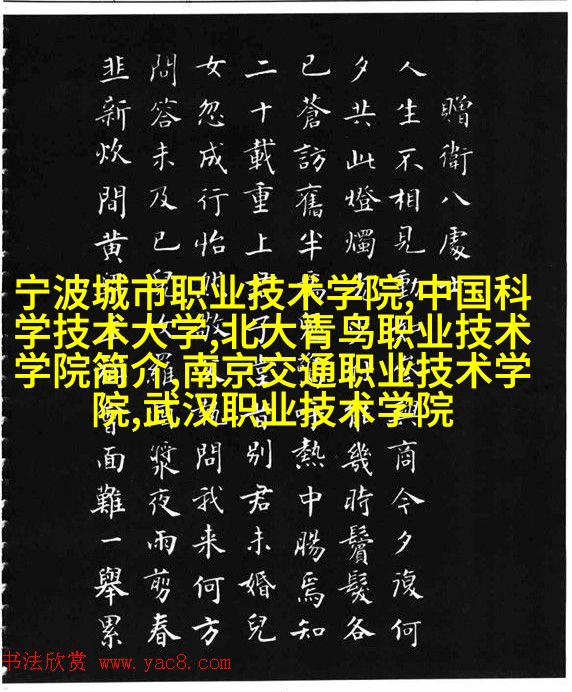 贈衛八處
人生不相見動與商今夕復何
夕共此燈燭幾時鬢髮各
已蒼訪舊半熱中腸焉知
二十載重上君子堂昔別君未婚兒
女忽成行怡敬問我来何方
問答未及已兒女羅漿夜雨剪春
韭新炊間黄面難一舉累
宁波城市职业技术学院,中国科
学技术大学,北大青鸟职业技术
学院简介,南京交通职业技术学
院,武汉职业技术学院
书法欣赏 www.yac8.com